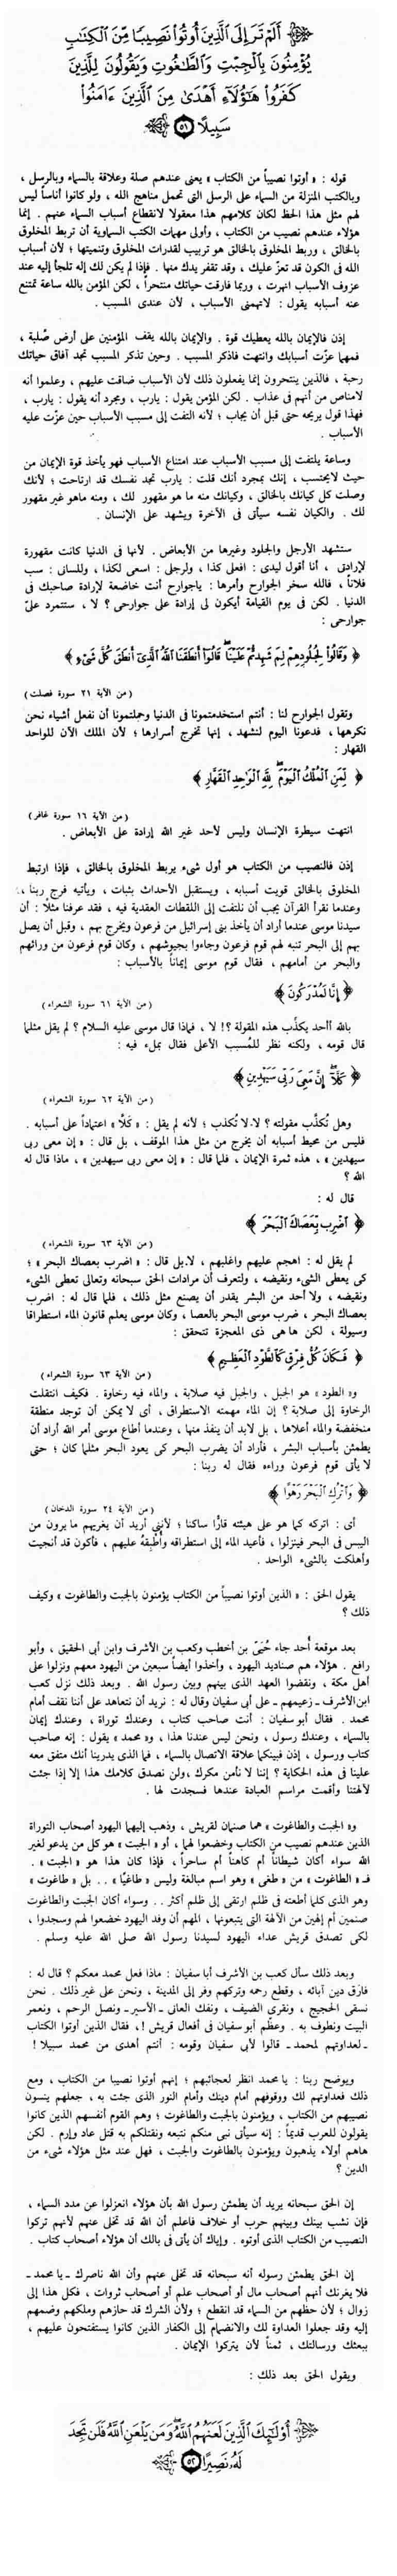 أَلَمْ تَرَ إِلَى الَّذِينَ أُوتُوا نَصِيبًا مِّنَ الْكِتَابِ
يُؤْمِنُونَ بِالْجِبْتِ وَالطَّاغُوتِ وَيَقُولُونَ لِلَّذِينَ
كَفَرُوا هَؤُلَاءِ أَهْدَى مِنَ الَّذِينَ ءَامَنُوا
سَبِيلًا ٥١
قوله : « أوتوا نصيباً من الكتاب » يعنى عندهم صلة وعلاقة بالسماء وبالرسل ،
وبالكتب المنزلة من السماء على الرسل التى تحمل مناهج الله ، ولو كانوا أناساً ليس
لهم مثل هذا الحظ لكان كلامهم هذا معقولا لانقطاع أسباب السماء عنهم . إنما
هؤلاء عندهم نصيب من الكتاب ، وأولى مهمات الكتب السماوية أن تربط المخلوق
بالخالق ، وربط المخلوق بالخالق هو تربيب لقدرات المخلوق وتنميتها ؛ لأن أسباب
الله فى الكون قد تعزّ عليك ، وقد تقفر يدك منها . فإذا لم يكن لك إله تلجأ إليه عند
عزوف الأسباب انهرت ، وربما فارقت حياتك منتحراً ، لكن المؤمن بالله ساعة تمتنع
عنه أسبابه يقول : لاتهمنى الأسباب ، لأن عندى المسبب .
إذن فالإيمان بالله يعطيك قوة . والإيمان بالله يقف المؤمنين على أرض صُلبة ،
فمهما عزّت أسبابك وانتهت فاذكر المسبب . وحين تذكر المسبب تجد آفاق حياتك
رحبة ، فالذين ينتحرون إنما يفعلون ذلك لأن الأسباب ضاقت عليهم ، وعلموا أنه
لامناص من أنهم فى عذاب . لكن المؤمن يقول : يارب ، وبمجرد أنه يقول : يارب ،
فهذا قول يريحه حتى قبل أن يجاب ؛ لأنه التفت إلى مسبب الأسباب حين عزّت عليه
الأسباب .
وساعة يلتفت إلى مسبب الأسباب عند امتناع الأسباب فهو يأخذ قوة الإيمان من
حيث لايحتسب ، إنك بمجرد أنك قلت : يارب تجد نفسك قد ارتاحت ؛ لأنك
وصلت كل كيانك بالخالق ، وكيانك منه ما هو مقهور لك ، ومنه ماهو غير مقهور
لك . والكيان نفسه سيأتى فى الآخرة ويشهد على الإنسان .
ستشهد الأرجل والجلود وغيرها من الأبعاض . لأنها فى الدنيا كانت مقهورة
لإرادتى ، أنا أقول ليدى : افعلى كذا ، ولرجلى : اسعى لكذا ، وللسانى : سب
فلاناً ، فالله سخر الجوارح وأمرها : ياجوارح أنت خاضعة لإرادة صاحبك فى
الدنيا . لكن فى يوم القيامة أيكون لى إرادة على جوارحى ؟ لا ، ستتمرد علىّ
جوارحى :
﴿ وَقَالُوا لِجُلُودِهِمْ لِمَ شَهِدتُّمْ عَلَيْنَا قَالُوا أَنطَقَنَا اللَّهُ الَّذِى أَنطَقَ كُلَّ شَىْءٍ ﴾
( من الآية ٢١ سورة فصلت )
وتقول الجوارح لنا : أنتم استخدمتمونا فى الدنيا وحملتمونا أن نفعل أشياء نحن
نكرهها ، فدعونا اليوم لنشهد ، إنها تخرج أسرارها ؛ لأن الملك الآن للواحد
القهار :
﴿ لِّمَنِ الْمُلْكُ الْيَوْمَ لِلَّهِ الْوَاحِدِ الْقَهَّارِ ﴾
( من الآية ١٦ سورة غافر )
انتهت سيطرة الإنسان وليس لأحد غير الله إرادة على الأبعاض .
إذن فالنصيب من الكتاب هو أول شىء يربط المخلوق بالخالق ، فإذا ارتبط
المخلوق بالخالق قويت أسبابه ، ويستقبل الأحداث بثبات ، ويأتيه فرج ربنا ،
وعندما نقرأ القرآن يجب أن نلتفت إلى اللقطات العقدية فيه ، فقد عرفنا مثلاً : أن
سيدنا موسى عندما أراد أن يأخذ بنى إسرائيل من فرعون ويخرج بهم ، وقبل أن يصل
بهم إلى البحر تنبه لهم قوم فرعون وجاءوا بجيوشهم ، وكان قوم فرعون من ورائهم
والبحر من أمامهم ، فقال قوم موسى إيماناً بالأسباب :
﴿ إِنَّا لَمُدْرَكُونَ ﴾
( من الآية ٦١ سورة الشعراء )
بالله أأحد يكذّب هذه المقولة ؟! لا ، فماذا قال موسى عليه السلام ؟ لم يقل مثلما
قال قومه ، ولكنه نظر للمُسبب الأعلى فقال بملء فيه :
﴿ كَلَّا إِنَّ مَعِىَ رَبِّى سَيَهْدِينِ ﴾
( من الآية ٦٢ سورة الشعراء )
وهل تُكذَّب مقولته ؟ لا. لا تُكذب ؛ لأنه لم يقل : « كَلَّا » اعتماداً على أسبابه .
فليس من محيط أسبابه أن يخرج من مثل هذا الموقف ، بل قال : « إن معى ربى
سيهدين » ، هذه ثمرة الإيمان ، فلما قال : « إن معى ربى سيهدين » ، ماذا قال له
الله ؟
قال له :
﴿ اضْرِب بِّعَصَاكَ الْبَحْرَ ﴾
( من الآية ٦٣ سورة الشعراء )
لم يقل له : اهجم عليهم واغلبهم ، لا. بل قال : « اضرب بعصاك البحر » ؛
كى يعطى الشىء ونقيضه ، ولتعرف أن مرادات الحق سبحانه وتعالى تعطى الشىء
ونقيضه ، ولا أحد من البشر يقدر أن يصنع مثل ذلك ، فلما قال له : اضرب
بعصاك البحر ، ضرب موسى البحر بالعصا ، وكان موسى يعلم قانون الماء استطراقا
وسيولة ، لكن ها هى ذى المعجزة تتحقق :
﴿ فَكَانَ كُلُّ فِرْقٍ كَالطَّوْدِ الْعَظِيمِ ﴾
( من الآية ٦٣ سورة الشعراء )
و« الطود » هو الجبل ، والجبل فيه صلابة ، والماء فيه رخاوة . فكيف انتقلت
الرخاوة إلى صلابة ؟ إن الماء مهمته الاستطراق ، أى لا يمكن أن توجد منطقة
منخفضة والماء أعلاها ، بل لابد أن ينفذ منها ، وعندما أطاع موسى أمر الله أراد أن
يطمئن بأسباب البشر ، فأراد أن يضرب البحر كى يعود البحر مثلما كان ؛ حتى
لا يأتى قوم فرعون وراءه فقال له ربنا :
﴿ وَاتْرُكِ الْبَحْرَ رَهْوًا ﴾
( من الآية ٢٤ سورة الدخان )
أى : اتركه كما هو على هيئته قارًّا ساكنا ؛ لأننى أريد أن يغريهم ما يرون من
اليبس فى البحر فينزلوا ، فأعيد الماء إلى استطراقه وأُطْبِقهُ عليهم ، فأكون قد أنجيت
وأهلكت بالشىء الواحد .
يقول الحق : « الذين أوتوا نصيباً من الكتاب يؤمنون بالجبت والطاغوت » وكيف
ذلك ؟
بعد موقعة أُحد جاء حُيَىّ بن أخطب وكعب بن الأشرف وابن أبى الحقيق ، وأبو
رافع . هؤلاء هم صناديد اليهود ، وأخذوا أيضاً سبعين من اليهود معهم ونزلوا على
أهل مكة ، ونقضوا العهد الذى بينهم وبين رسول الله . وبعد ذلك نزل كعب
ابن الأشرف ـ زعيمهم ـ على أبى سفيان وقال له : نريد أن نتعاهد على أننا نقف أمام
محمد . فقال أبو سفيان : أنت صاحب كتاب ، وعندك توراة ، وعندك إيمان
بالسماء ، وعندك رسول ، ونحن ليس عندنا هذا ، و« محمد » يقول : إنه صاحب
كتاب ورسول ، إذن فبينكما علاقة الاتصال بالسماء ، فما الذى يدرينا أنك متفق معه
علينا فى هذه الحكاية ؟ إننا لا نأمن مكرك ،ولن نصدق كلامك هذا إلا إذا جئت
لآلهتنا وأقمت مراسم العبادة عندها فسجدت لها .
و« الجبت والطاغوت » هما صنمان لقريش ، وذهب إليهما اليهود أصحاب التوراة
الذين عندهم نصيب من الكتاب وخضعوا لهما ، أو « الجبت » هو كل من يدعو لغير
الله سواء أكان شيطاناً أم كاهناً أم ساحراً ، فإذا كان هذا هو « الجبت » .
فـ « الطاغوت » من « طغى » وهو اسم مبالغة وليس « طاغيًا » . . بل « طاغوت »
وهو الذى كلما أطعته فى ظلم ارتقى إلى ظلم أكثر . . وسواء أكان الجبت والطاغوت
صنمين أم إلهين من الآلهة التى يتبعونها ، المهم أن وفد اليهود خضعوا لهم وسجدوا ،
لكى تصدق قريش عداء اليهود لسيدنا رسول الله صلى الله عليه وسلم .
وبعد ذلك سأل كعب بن الأشرف أبا سفيان : ماذا فعل محمد معكم ؟ قال له :
فارق دين آبائه ، وقطع رحمه وتركهم وفر إلى المدينة ، ونحن على غير ذلك . نحن
نسقى الحجيج ، ونقرى الضيف ، ونفك العانى ـ الأسير ـ ونصل الرحم ، ونعمر
البيت ونطوف به . وعظّم أبو سفيان فى أفعال قريش !. فقال الذين أوتوا الكتاب
ـ لعداوتهم لمحمد ـ قالوا لأبى سفيان وقومه : أنتم أهدى من محمد سبيلا !
ويوضح ربنا : يا محمد انظر لعجائبهم ؛ إنهم أوتوا نصيبا من الكتاب ، ومع
ذلك فعداوتهم لك ووقوفهم أمام دينك وأمام النور الذى جئت به ، جعلهم ينسون
نصيبهم من الكتاب ، ويؤمنون بالجبت والطاغوت ؛ وهم القوم أنفسهم الذين كانوا
يقولون للعرب قديماً : إنه سيأتى نبى منكم نتبعه ونقتلكم به قتل عاد وإرم . لكن
هاهم أولاء يذهبون ويؤمنون بالطاغوت والجبت ، فهل عند مثل هؤلاء شىء من
الدين ؟
إن الحق سبحانه يريد أن يطمئن رسول الله بأن هؤلاء انعزلوا عن مدد السماء ،
فإن نشب بينك وبينهم حرب أو خلاف فاعلم أن الله قد تخلى عنهم لأنهم تركوا
النصيب من الكتاب الذى أوتوه . وإياك أن يأتى فى بالك أن هؤلاء أصحاب كتاب .
إن الحق يطمئن رسوله أنه سبحانه قد تخلى عنهم وأن الله ناصرك ـ يا محمد ـ
فلا يغرنك أنهم أصحاب مال أو أصحاب علم أو أصحاب ثروات ، فكل هذا إلى
زوال ؛ لأن حظهم من السماء قد انقطع ؛ ولأن الشرك قد حازهم وملكهم وضمهم
إليه وقد جعلوا العداوة لك والانضمام إلى الكفار الذين كانوا يستفتحون عليهم ،
ببعثك ورسالتك ، ثمناً لأن يتركوا الإيمان .
ويقول الحق بعد ذلك :
أُولَئِكَ الَّذِينَ لَعَنَهُمُ اللَّهُ وَمَن يَلْعَنِ اللَّهُ فَلَن تَجِدَ
لَهُ نَصِيرًا ٥٢